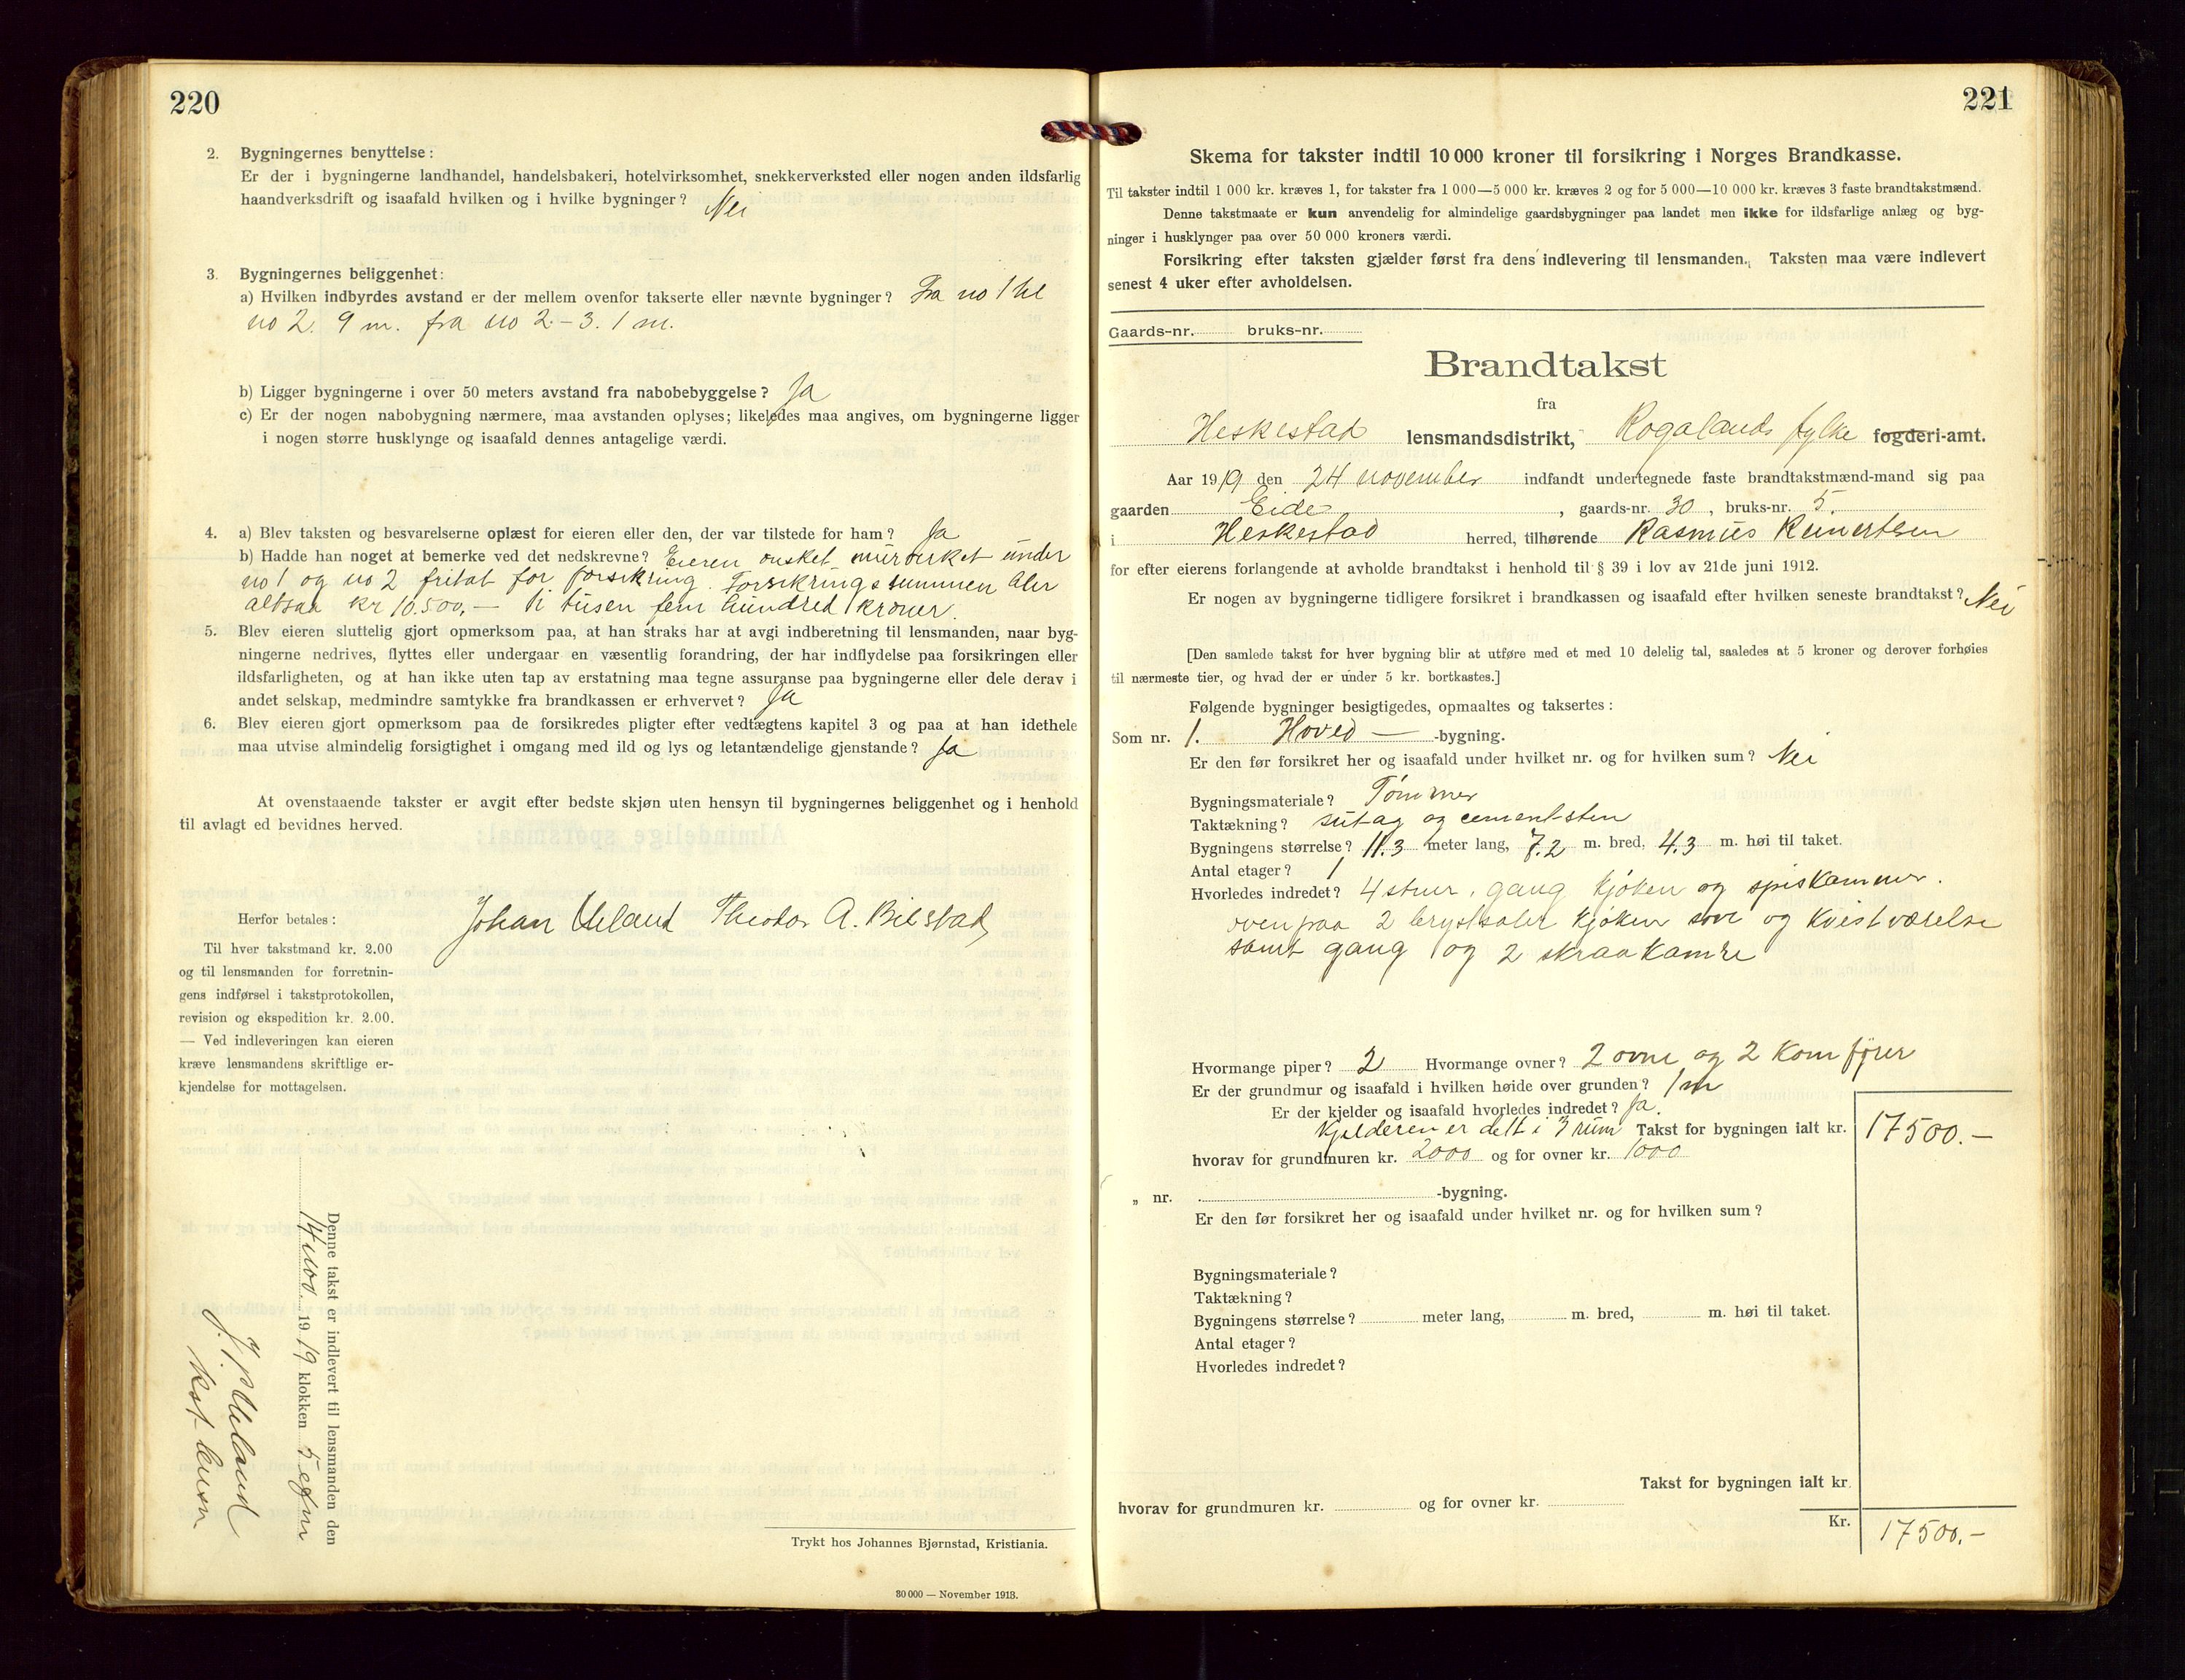 220
2. Bygningernes benyttelse:
Er der i bygningerne landhandel, handelsbakeri, hotelvirksomhet, snekkerverksted eller nogen anden ildsfarlig
haandverksdrift og isaafald hvilken og i hvilke bygninger? Nei
3. Bygningernes beliggenhet:
a) Hvilken indbyrdes avstand er der mellem ovenfor takserte eller nævnte bygninger? Fra no 1 til
no 2. 9 m. fra no 2-3. 1 m.
b) Ligger bygningerne i over 50 meters avstand fra nabobebyggelse? Ja
c) Er der nogen nabobygning nærmere, maa avstanden oplyses; likeledes maa angives, om bygningerne ligger
i nogen større husklynge og isaafald dennes antagelige værdi.
4. a) Blev taksten og besvarelserne oplæst for eieren eller den, der var tilstede for ham? Ja
b) Hadde han noget at bemerke ved det nedskrevne? Eieren ønsket murverket under
no 1 og no 2 fritat for forsikring. Forsikringssummen blir
altsaa kr 10.500,- ti tusen fem hundred kroner.
5. Blev eieren sluttelig gjort opmerksom paa, at han straks har at avgi indberetning til lensmanden, naar byg-
ningerne nedrives, flyttes eller undergaar en væsentlig forandring, der har indflydelse paa forsikringen eller
ildsfarligheten, og at han ikke uten tap av erstatning maa tegne assuranse paa bygningerne eller dele derav i
andet selskap, medmindre samtykke fra brandkassen er erhvervet? Ja
6. Blev eieren gjort opmerksom paa de forsikredes pligter efter vedtægtens kapitel 3 og paa at han idethele
maa utvise almindelig forsigtighet i omgang med ild og lys og letantændelige gjenstande? Ja
At ovenstaaende takster er avgit efter bedste skjøn uten hensyn til bygningernes beliggenhet og i henhold
til avlagt ed bevidnes herved.
Johan Ueland Theodor A. Bilstad
Herfor betales:
Til hver takstmand kr. 2.00
og til lensmanden for forretnin-
gens indførsel i takstprotokollen,
revision og ekspedition kr. 2.00.
— Ved indleveringen kan eieren
kræve lensmandens skriftlige er-
kjendelse for mottagelsen.
Denne takst er indlevert til lensmanden den
14 nov. 1919 klokken 5 efm
Ueland
Trykt hos Johannes Bjørnstad, Kristiania.
30 000 — November 1913.
221
Skema for takster indtil 10 000 kroner til forsikring i Norges Brandkasse.
Til takster indtil 1 000 kr. kræves 1, for takster fra 1 000—5 000 kr. kræves 2 og for 5 000—10 000 kr. kræves 3 faste brandtakstmænd.
Denne takstmaate er kun anvendelig for almindelige gaardsbygninger paa landet men ikke for ildsfarlige anlæg og byg-
ninger i husklynger paa over 50 000 kroners værdi.
Forsikring efter taksten gjælder først fra dens indlevering til lensmanden. Taksten maa være indlevert
senest 4 uker efter avholdelsen.
Gaards-nr. bruks-nr.
Brandtakst
fra
Heskestad lensmandsdistrikt, Rogalands fylke fogderi-amt.
Aar 1919 den 24 november indfandt undertegnede faste brandtakstmænd-mand sig paa
gaarden Eide, gaards-nr. 30, bruks-nr. 5.
i Heskestad herred, tilhørende Rasmus Reinertsen
for efter eierens forlangende at avholde brandtakst i henhold til § 39 i lov av 21de juni 1912.
Er nogen av bygningerne tidligere forsikret i brandkassen og isaafald efter hvilken seneste brandtakst? Nei
[Den samlede takst for hver bygning blir at utføre med et med 10 delelig tal, saaledes at 5 kroner og derover forhøies
til nærmeste tier, og hvad der er under 5 kr. bortkastes.]
Følgende bygninger besigtigedes, opmaaltes og taksertes:
Som nr. 1. Hoved — -bygning.
Er den før forsikret her og isaafald under hvilket nr. og for hvilken sum? Nei
Bygningsmateriale? Tømmer
Taktækning? sutag og cementsten
Bygningens størrelse? 11.3 meter lang, 7.2 m. bred, 4.3 m. høi til taket.
Antal etager? 1
Hvorledes indredet? 4 stuer, gang kjøken og spiskammer.
ovenpaa 2 brystsaler kjøken sove og kvistværelse
samt gang og 2 skraakamre
Hvormange piper? 2 Hvormange ovner? 2 ovne og 2 komfyrer
Er der grundmur og isaafald i hvilken høide over grunden? 1 m
Er der kjelder og isaafald hvorledes indredet? Ja.
Kjelderen er delt i 3 rum Takst for bygningen ialt kr. 17500.-
hvorav for grundmuren kr. 2000 og for ovner kr. 1000
„ nr. -bygning.
Er den før forsikret her og isaafald under hvilket nr. og for hvilken sum?
Bygningsmateriale?
Taktækning?
Bygningens størrelse? meter lang, m. bred, m. høi til taket.
Antal etager?
Hvorledes indredet?
Takst for bygningen ialt kr.
hvorav for grundmuren kr. og for ovner kr.
Kr. 17500.-